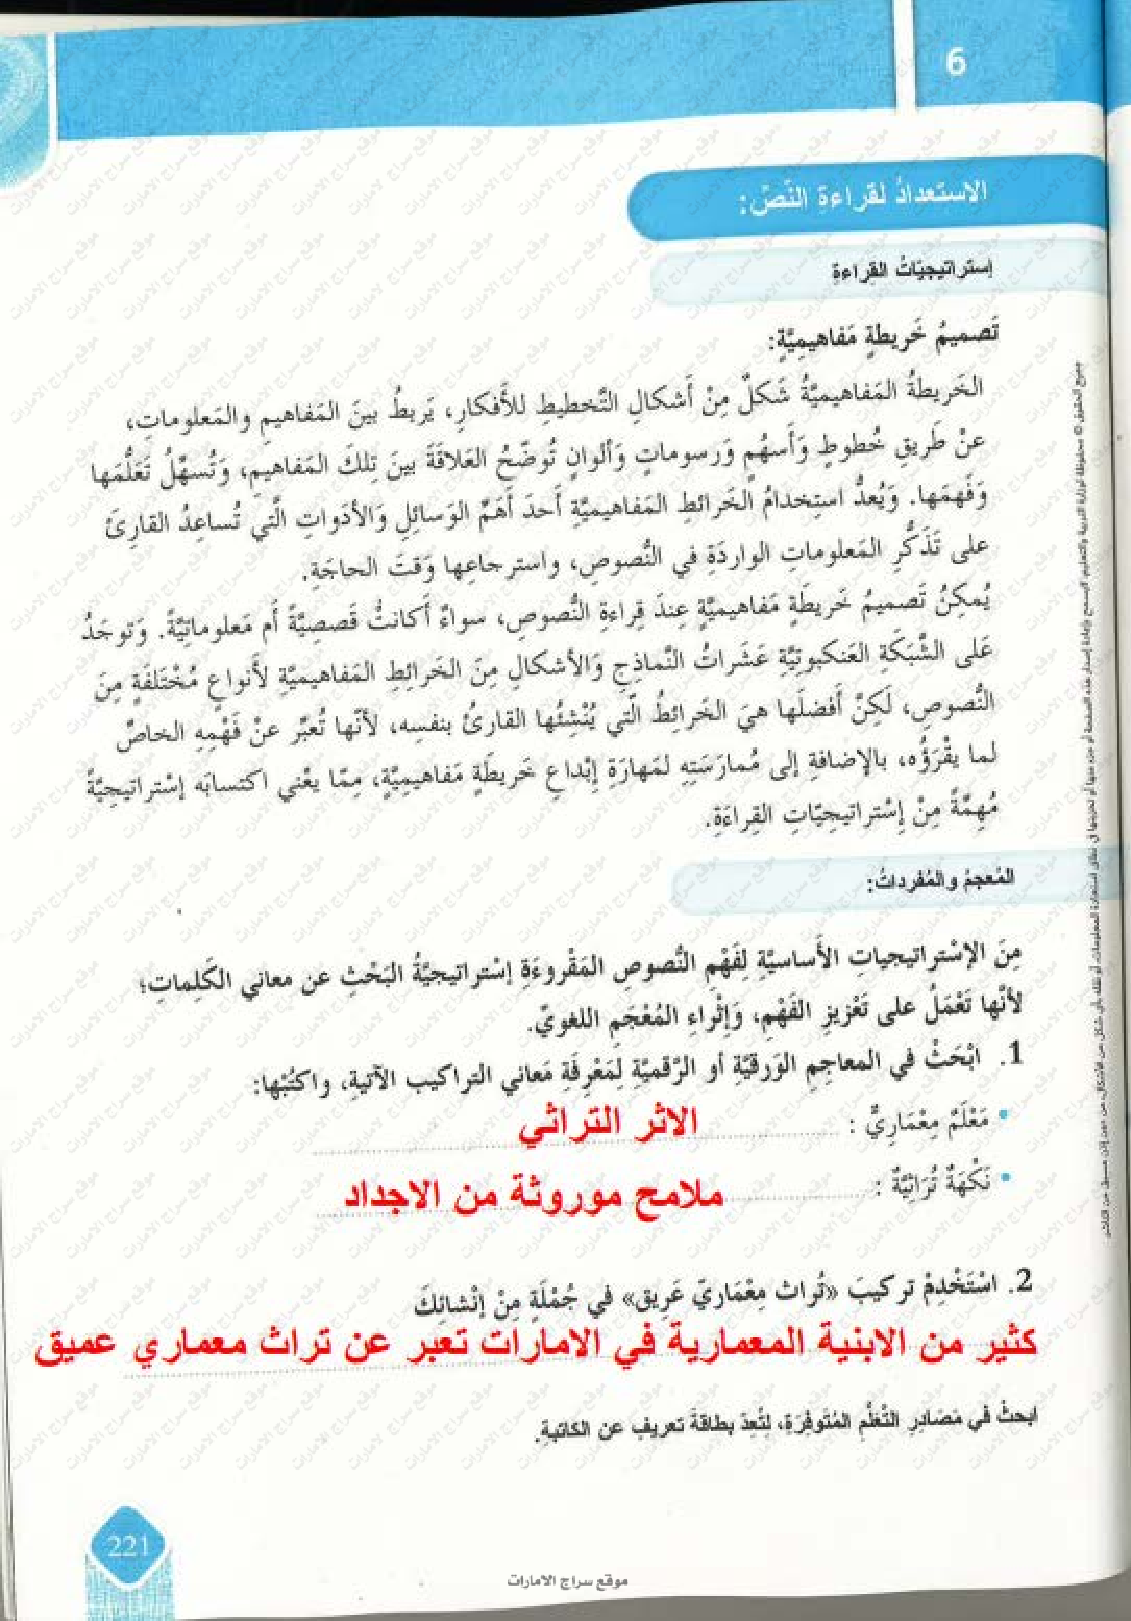 6
الاستعدادُ لقراءةِ النَّصّ:
إستراتيجيّاتُ القِراءةِ
تَصميمُ خَريطةٍ مَفاهيميَّةٍ:
الخَريطةُ المَفاهيميَّةُ شَكلٌ مِنْ أَشكالِ التَّخطيطِ للأَفكارِ، يَربطُ بينَ المَفاهيمِ والمَعلوماتِ،
عنْ طَريقِ خُطوطٍ وَأَسهُمٍ وَرَسوماتٍ وَألوانٍ تُوضّحُ العَلاقَةَ بينَ تِلكَ المَفاهيمِ، وَتُسهّلُ تَعَلُّمَها
وَفَهمَها. وَيُعدُّ استِخدامُ الخَرائطِ المَفاهيميَّةِ أَحدَ أَهَمّ الوَسائِلِ وَالأدَواتِ الَّتي تُساعِدُ القارِئَ
على تَذَكُّرِ المَعلوماتِ الوارِدَةِ في النُّصوصِ، واسترجاعِها وَقتَ الحاجَةِ.
يُمكِنُ تَصميمُ خَريطَةٍ مَفاهيميَّةٍ عِندَ قِراءةِ النُّصوصِ، سواءٌ أَكانتْ قَصصِيَّةً أَم مَعلوماتيَّةً. وَتوجَدُ
عَلى الشَّبَكَةِ العَنكبوتِيَّةِ عَشَراتُ النَّماذِجِ وَالأشكالِ مِنَ الخَرائِطِ المَفاهيميَّةِ لأَنواعٍ مُخْتَلفَةٍ مِنَ
النُّصوصِ، لَكِنْ أَفضلَها هيَ الخَرائطُ الَّتي يُنْشِئُها القارئُ بنفسِه، لأنّها تُعبّر عنْ فَهْمِهِ الخاصِّ
لما يقْرَؤُه، بالإضافةِ إلى مُمارَسَتِهِ لمَهارَةِ إبْداعِ خَريطَةٍ مَفاهيميَّةٍ، مِمّا يعْني اكتسابَه إسْتراتيجيَّةً
مُهمَّةً مِنْ إسْتراتيجيّاتِ القِراءَةِ.
المُعجمُ والمُفرداتُ:
مِنَ الإسْتراتيجياتِ الأَساسيَّةِ لِفَهْمِ النُّصوصِ المَقْروءَةِ إسْتراتيجيَّةُ البَحْثِ عن معاني الكَلِماتِ؛
لأنَّها تَعْمَلُ على تَعْزيزِ الفَهْمِ، وَإثْراءِ المُعْجَمِ اللغويّ.
1. ابْحَثْ في المعاجِمِ الوَرقيَّةِ أو الرَّقميَّةِ لِمَعْرِفَةِ مَعاني التراكيب الآتيةِ، واكتُبْها:
• مَعْلَمٌ مِعْمَارِيٌّ : الاثر التراثي
• نَكْهَةٌ تُرَاثِيَّةٌ : ملامح موروثة من الاجداد
2. اسْتَخْدِمْ تركيبَ «تُراث مِعْمَاريّ عَريق» في جُمْلَةٍ مِنْ إنْشائِكَ
كثير من الابنية المعمارية في الامارات تعبر عن تراث معماري عميق
ابحثْ في مَصَادِرِ التَّعَلُّمِ المُتَوفِرَةِ، لتُعِدَّ بطاقَةَ تعريفٍ عن الكاتبةِ.
221
موقع سراج الامارات